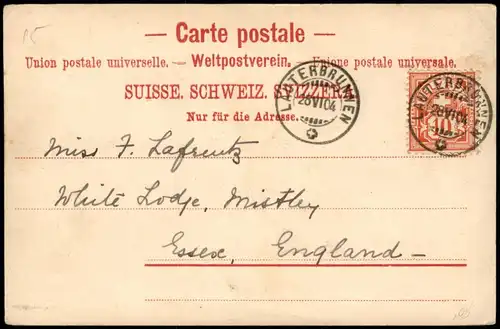 15
— Carte postale —
Union postale universelle. — Weltpostverein. — Unione postale universale.
SUISSE. SCHWEIZ. SVIZZERA.
Nur für die Adresse.
LAUTERBRUNNEN
26 VI 04
LAUTERBRUNNEN
26 VI 04
10
Miss F. Lafrentz
White Lodge, Mistley
Essex, England —